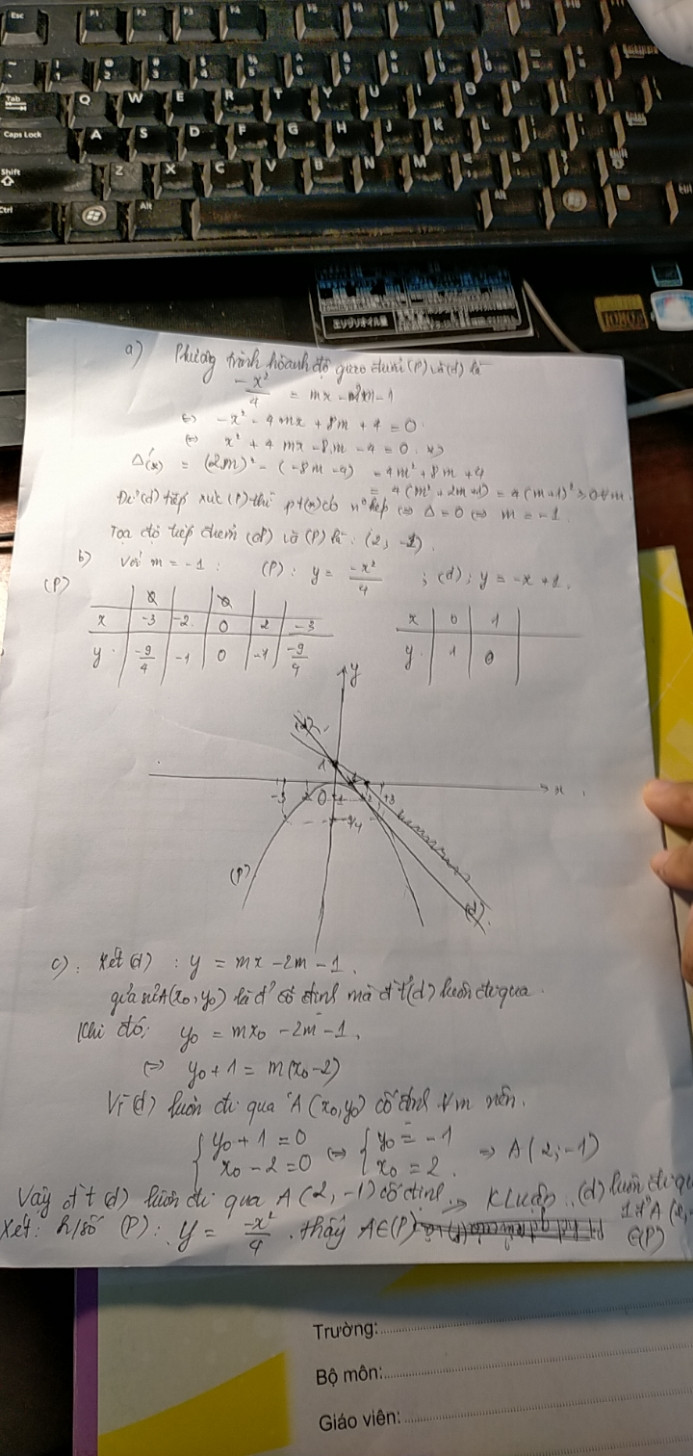 Esc F1 F2 F3 F4
Tab Q W E R T Y U I O P
Caps Lock A S D F G H J K L
Shift Z X C V B N M
Ctrl Alt
a) Phương trình hoành độ giao điểm (P) và (d) là
-x²/4 = mx - 2m - 1
⇔ -x² - 4mx + 8m + 4 = 0
⇔ x² + 4mx - 8m - 4 = 0 (*)
Δ'(*) = (2m)² - (-8m - 4) = 4m² + 8m + 4
= 4(m² + 2m + 1) = 4(m+1)² ≥ 0 ∀m
Để (d) tiếp xúc (P) thì pt(*) có nº kép ⇔ Δ = 0 ⇔ m = -1
Toạ độ tiếp điểm (d) và (P) là: (2, -1).
b) Với m = -1 : (P): y = -x²/4 ; (d): y = -x + 1.
(P)
x -3 -2 0 2 -3
y -9/4 -1 0 -1 -9/4
x 0 1
y 1 0
y
(d)
1
-3 -2 O 1 2 +3 x
-9/4
(P)
(d)
c). Xét (d) : y = mx - 2m - 1.
giả sử A(x₀, y₀) là đ' cố định mà đ't (d) luôn đi qua.
Khi đó: y₀ = mx₀ - 2m - 1.
⇔ y₀ + 1 = m(x₀ - 2)
Vì (d) luôn đi qua A(x₀, y₀) cố định ∀m nên.
{y₀ + 1 = 0 ⇔ {y₀ = -1 ⇒ A(2; -1)
{x₀ - 2 = 0 {x₀ = 2.
Vậy đ't (d) luôn đi qua A(2, -1) cố định. ⇒ K luận .. (d) luôn đi qua
Xét: h/số (P): y = -x²/4. thấy A∈(P) 1 đ' A(2, ∈(P)
Trường:
Bộ môn:
Giáo viên: